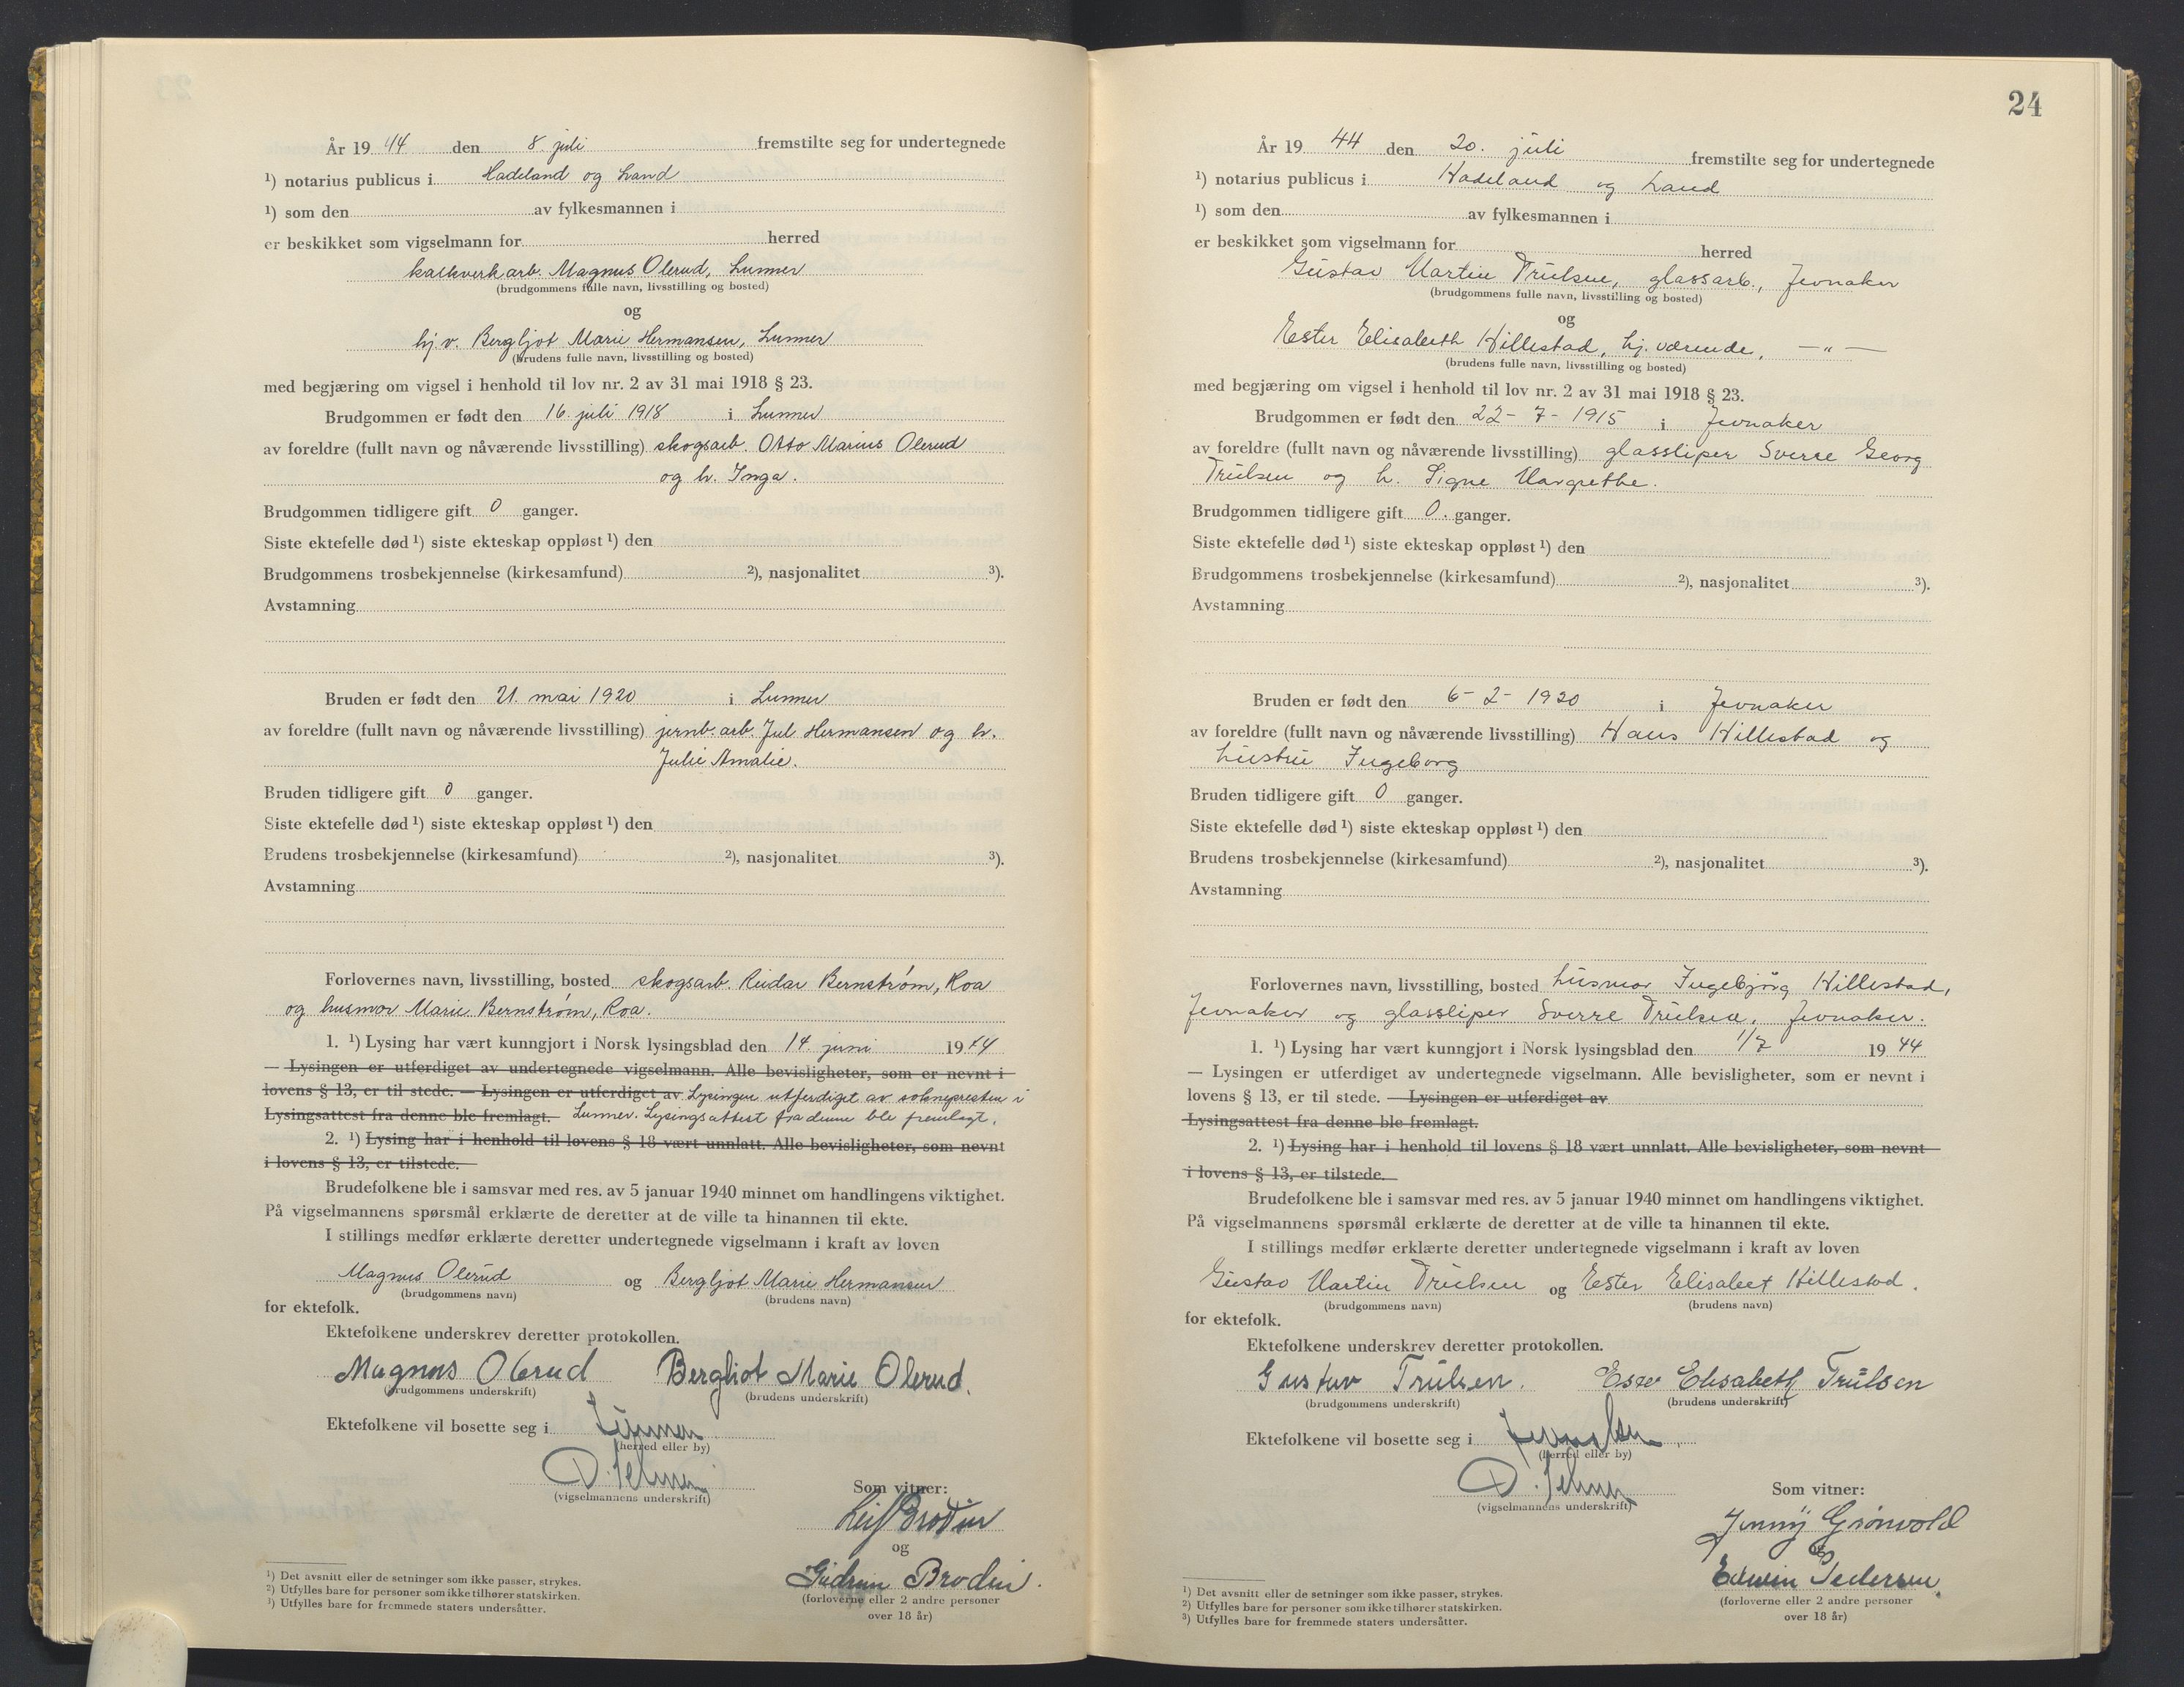 År 19 44 den 8. juli fremstilte seg for undertegnede
¹) notarius publicus i Hadeland og Land
¹) som den av fylkesmannen i
er beskikket som vigselmann for herred
kalkverkarb. Magnus Olerud, Lunner
(brudgommens fulle navn, livsstilling og bosted)
og
hj.v. Bergljot Marie Hermansen, Lunner
(brudens fulle navn, livsstilling og bosted)
med begjæring om vigsel i henhold til lov nr. 2 av 31 mai 1918 § 23.
Brudgommen er født den 16. juli 1918 i Lunner
av foreldre (fullt navn og nåværende livsstilling) skogsarb. Otto Marius Olerud
og h. Inga.
Brudgommen tidligere gift 0 ganger.
Siste ektefelle død ¹) siste ekteskap oppløst ¹) den
Brudgommens trosbekjennelse (kirkesamfund) ²), nasjonalitet ³).
Avstamning
Bruden er født den 21. mai 1920 i Lunner
av foreldre (fullt navn og nåværende livsstilling) jernb.arb. Jul Hermansen og h.
Julie Amalie.
Bruden tidligere gift 0 ganger.
Siste ektefelle død ¹) siste ekteskap oppløst ¹) den
Brudens trosbekjennelse (kirkesamfund) ²), nasjonalitet ³).
Avstamning
Forlovernes navn, livsstilling, bosted skogsarb. Reidar Bernstrøm, Roa
og husmor Marie Bernstrøm, Roa.
1. ¹) Lysing har vært kunngjort i Norsk lysingsblad den 14. juni 1944
— Lysingen er utferdiget av undertegnede vigselmann. Alle bevisligheter, som er nevnt i
lovens § 13, er til stede. — Lysingen er utferdiget av Lysingen utferdiget av soknepresten i
Lysingsattest fra denne ble fremlagt. Lunner. Lysingsattest fra denne ble fremlagt.
2. ¹) Lysing har i henhold til lovens § 18 vært unnlatt. Alle bevisligheter, som nevnt
i lovens § 13, er tilstede.
Brudefolkene ble i samsvar med res. av 5 januar 1940 minnet om handlingens viktighet.
På vigselmannens spørsmål erklærte de deretter at de ville ta hinannen til ekte.
I stillings medfør erklærte deretter undertegnede vigselmann i kraft av loven
Magnus Olerud og Bergljot Marie Hermansen
(brudgommens navn) (brudens navn)
for ektefolk.
Ektefolkene underskrev deretter protokollen.
Magnus Olerud Bergliot Marie Olerud.
(brudgommens underskrift) (brudens underskrift)
Ektefolkene vil bosette seg i Lunner
(herred eller by)
(vigselmannens underskrift)
Som vitner:
Leif Brodin
og
Gudrun Brodin.
(forloverne eller 2 andre personer
over 18 år)
¹) Det avsnitt eller de setninger som ikke passer, strykes.
²) Utfylles bare for personer som ikke tilhører statskirken.
³) Utfylles bare for fremmede staters undersåtter.
24
År 19 44 den 20. juli fremstilte seg for undertegnede
¹) notarius publicus i Hadeland og Land
¹) som den av fylkesmannen i
er beskikket som vigselmann for herred
Gustav Martin Trulsen, glassarb., Jevnaker
(brudgommens fulle navn, livsstilling og bosted)
og
Ester Elisabeth Hillestad, hj. værende, — " —
(brudens fulle navn, livsstilling og bosted)
med begjæring om vigsel i henhold til lov nr. 2 av 31 mai 1918 § 23.
Brudgommen er født den 22-7-1915 i Jevnaker
av foreldre (fullt navn og nåværende livsstilling) glassliper Sverre Georg
Trulsen og h. Signe Margrethe.
Brudgommen tidligere gift 0. ganger.
Siste ektefelle død ¹) siste ekteskap oppløst ¹) den
Brudgommens trosbekjennelse (kirkesamfund) ²), nasjonalitet ³).
Avstamning
Bruden er født den 6-2-1920 i Jevnaker
av foreldre (fullt navn og nåværende livsstilling) Hans Hillestad og
hustru Ingeborg
Bruden tidligere gift 0 ganger.
Siste ektefelle død ¹) siste ekteskap oppløst ¹) den
Brudens trosbekjennelse (kirkesamfund) ²), nasjonalitet ³).
Avstamning
Forlovernes navn, livsstilling, bosted husmor Ingebjørg Hillestad,
Jevnaker og glassliper Sverre Trulsen, Jevnaker.
1. ¹) Lysing har vært kunngjort i Norsk lysingsblad den 1/7 19 44
— Lysingen er utferdiget av undertegnede vigselmann. Alle bevisligheter, som er nevnt i
lovens § 13, er til stede. — Lysingen er utferdiget av
Lysingsattest fra denne ble fremlagt.
2. ¹) Lysing har i henhold til lovens § 18 vært unnlatt. Alle bevisligheter, som nevnt
i lovens § 13, er tilstede.
Brudefolkene ble i samsvar med res. av 5 januar 1940 minnet om handlingens viktighet.
På vigselmannens spørsmål erklærte de deretter at de ville ta hinannen til ekte.
I stillings medfør erklærte deretter undertegnede vigselmann i kraft av loven
Gustav Martin Trulsen og Ester Elisabet Hillestad.
(brudgommens navn) (brudens navn)
for ektefolk.
Ektefolkene underskrev deretter protokollen.
Gustav Trulsen. Ester Elisabeth Trulsen
(brudgommens underskrift) (brudens underskrift)
Ektefolkene vil bosette seg i Jevnaker
(herred eller by)
(vigselmannens underskrift)
Som vitner:
Jenny Grønvold
og
Edwin Pedersen.
(forloverne eller 2 andre personer
over 18 år)
¹) Det avsnitt eller de setninger som ikke passer, strykes.
²) Utfylles bare for personer som ikke tilhører statskirken.
³) Utfylles bare for fremmede staters undersåtter.